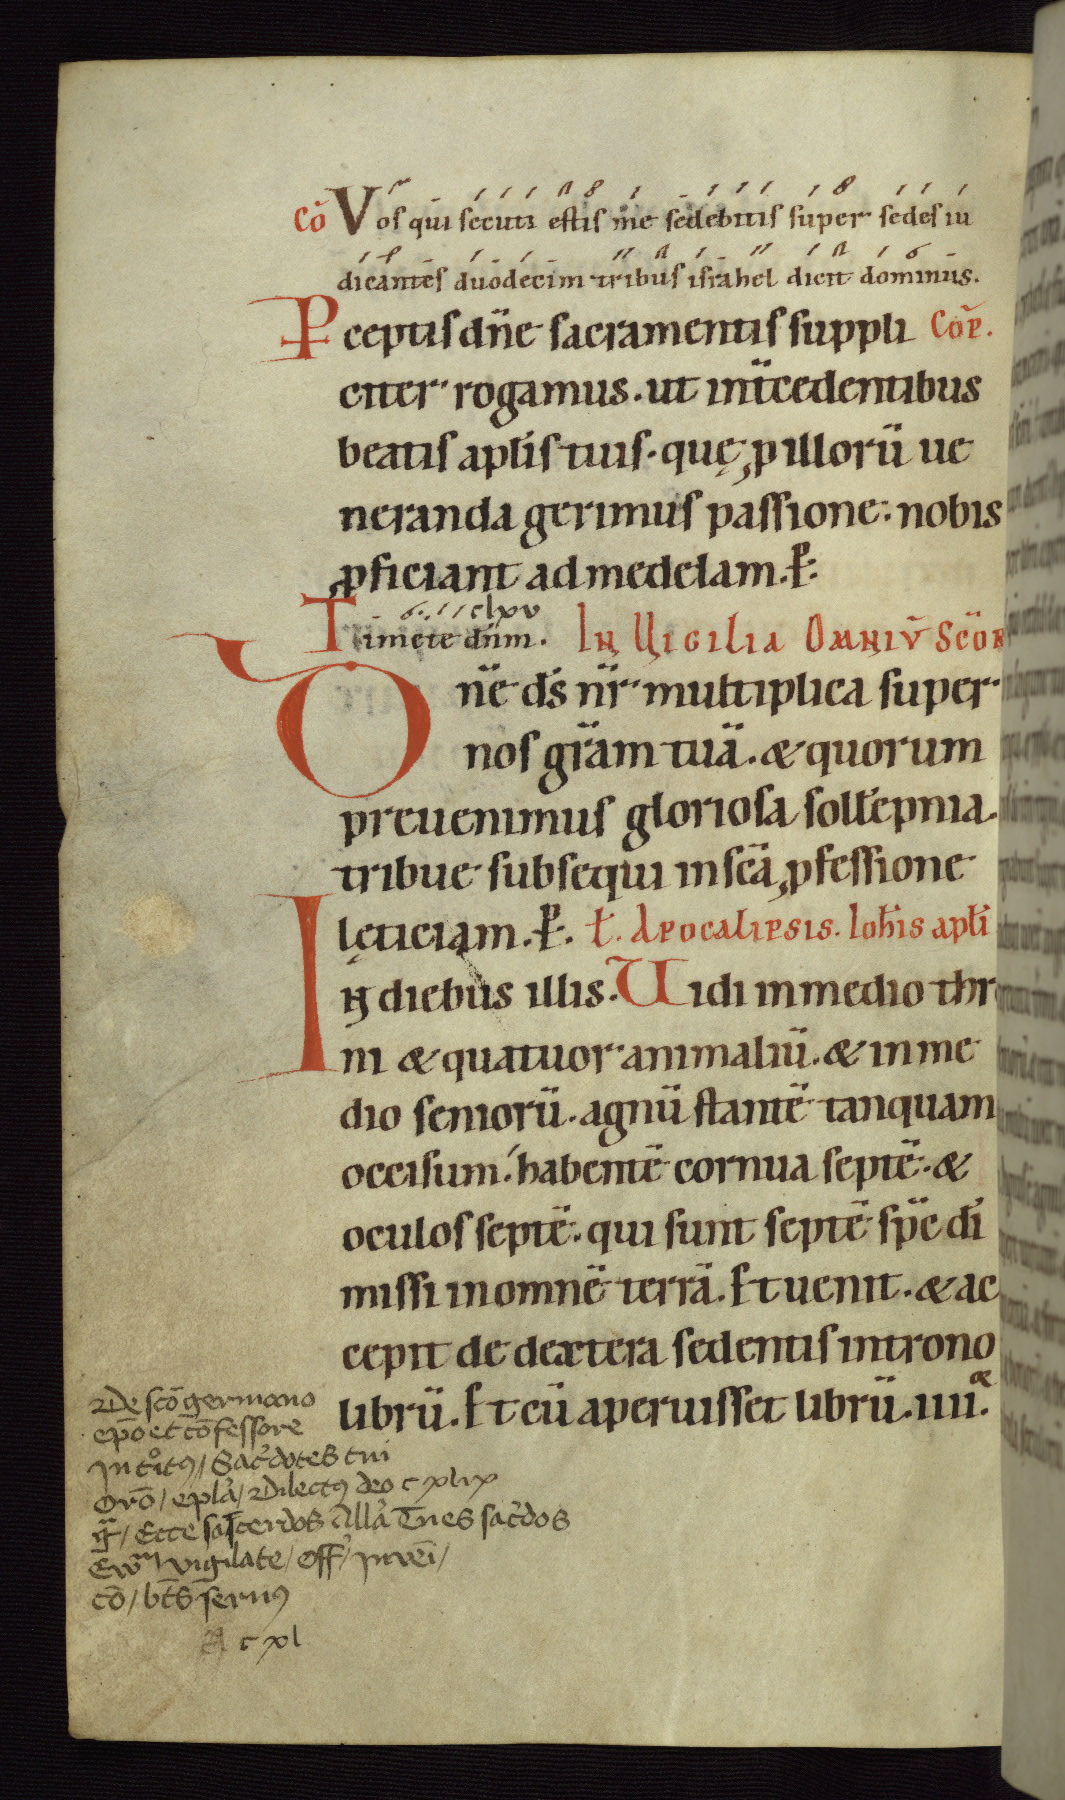 Cō Vos qui secuti estis me sedebitis super sedes iu
dicantes duodecim tribus israhel dicit dominus.
Pceptis dn̄e sacramentis suppli Cōp.
citer rogamus. ut int̄cedentibus
beatis aplis tuis. quę p illorū ue
neranda gerimus passione. nobis
pficiant ad medelam. P.
clxv
Timete dn̄m. In Uigilia Omniū Scōr
Dn̄e ds nr̄ multiplica super
nos gr̄am tuā. & quorum
preuenimus gloriosa sollepnia.
tribue subsequi in scā pfessione
lęticiam. P. ł. Apocalipsis. Iohis apli
In diebus illis. Uidi in medio thro
ni & quatuor animaliū. & in me
dio seniorū. agnū stantē tanquam
occisum. habentē cornua septē. &
oculos septē. qui sunt septē sp̄c di
missi in omnē terrā. Et uenit. & ac
cepit de dextera sedentis in trono
librū. Et cū aperuisset librū. iiii.
or
De scō germano
epō et cōfessore
Introitꝰ / Sacdotes tui
Orō / epla / Dilectꝰ deo c xlix
gͣ / Ecce sacerdos Alla Tu es sacdos
Ewͣ vigilate / Off / Inveni /
cō / bts seruꝰ
c xl